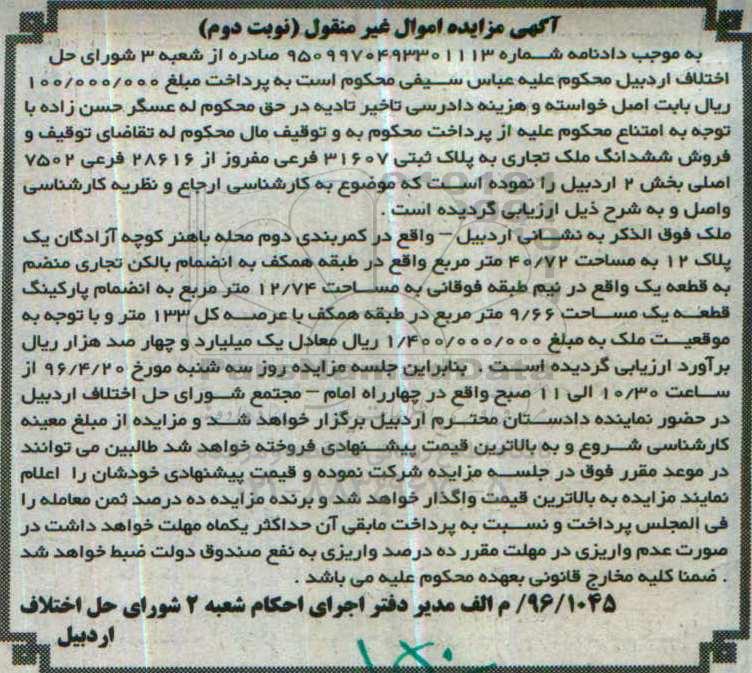 آگهی مزایده اموال غیر منقول (نوبت دوم)
به موجب دادنامه شماره ۹۵۰۹۹۷۰۴۹۳۳۰۱۱۱۳ صادره از شعبه ۳ شورای حل
اختلاف اردبیل محکوم علیه عباس سیفی محکوم است به پرداخت مبلغ ۱۰۰/۰۰۰/۰۰۰
ریال بابت اصل خواسته و هزینه دادرسی تاخیر تادیه در حق محکوم له عسگر حسن زاده با
توجه به امتناع محکوم علیه از پرداخت محکوم به و توقیف مال محکوم له تقاضای توقیف و
فروش ششدانگ ملک تجاری به پلاک ثبتی ۳۱۶۰۷ فرعی مفروز از ۲۸۶۱۶ فرعی ۷۵۰۲
اصلی بخش ۲ اردبیل را نموده است که موضوع به کارشناسی ارجاع و نظریه کارشناسی
واصل و به شرح ذیل ارزیابی گردیده است .
ملک فوق الذکر به نشانی اردبیل – واقع در کمربندی دوم محله باهنر کوچه آزادگان یک
پلاک ۱۲ به مساحت ۴۰/۷۲ متر مربع واقع در طبقه همکف به انضمام بالکن تجاری منضم
به قطعه یک واقع در نیم طبقه فوقانی به مساحت ۱۲/۷۴ متر مربع به انضمام پارکینگ
قطعه یک مساحت ۹/۶۶ متر مربع در طبقه همکف با عرصه کل ۱۳۳ متر و با توجه به
موقعیت ملک به مبلغ ۱/۴۰۰/۰۰۰/۰۰۰ ریال معادل یک میلیارد و چهار صد هزار ریال
برآورد ارزیابی گردیده است . بنابراین جلسه مزایده روز سه شنبه مورخ ۹۶/۴/۲۰ از
ساعت ۱۰/۳۰ الی ۱۱ صبح واقع در چهارراه امام – مجتمع شورای حل اختلاف اردبیل
در حضور نماینده دادستان محترم اردبیل برگزار خواهد شد و مزایده از مبلغ معینه
کارشناسی شروع و به بالاترین قیمت پیشنهادی فروخته خواهد شد طالبین می توانند
در موعد مقرر فوق در جلسه مزایده شرکت نموده و قیمت پیشنهادی خودشان را اعلام
نمایند مزایده به بالاترین قیمت واگذار خواهد شد و برنده مزایده ده درصد ثمن معامله را
فی المجلس پرداخت و نسبت به پرداخت مابقی آن حداکثر یکماه مهلت خواهد داشت در
صورت عدم واریزی در مهلت مقرر ده درصد واریزی به نفع صندوق دولت ضبط خواهد شد
. ضمنا کلیه مخارج قانونی بعهده محکوم علیه می باشد .
۹۶/۱۰۴۵/ م الف مدیر دفتر اجرای احکام شعبه ۲ شورای حل اختلاف
اردبیل
۱۵۰